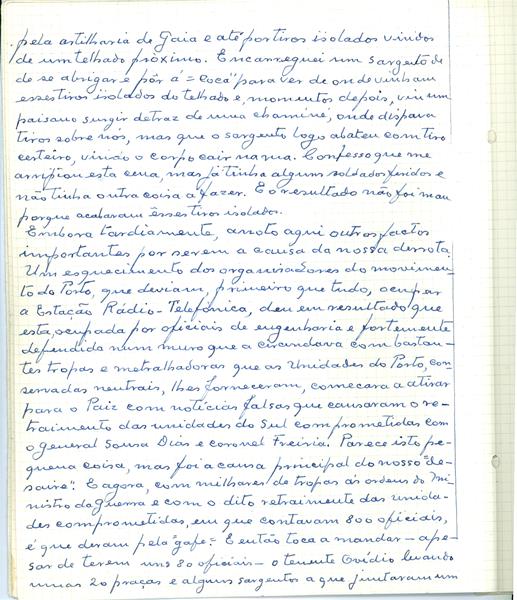 pela artilharia de Gaia e até por tiros isolados vindos
de um telhado próximo. Encarreguei um sargento de
de se abrigar e pôr á "coca" para ver de onde vinham
esses tiros isolados do telhado e, momentos depois, viu um
paisano surgir detraz de uma chaminé, onde dispara
tiros sobre nós, mas que o sargento logo abateu com tiro
certeiro, vindo o corpo cair na rua. Confesso que me
arripiou esta cena, mas já tinha alguns soldados feridos e
não tinha outra coisa a fazer. E o resultado não foi mau
porque acabaram êsses tiros isolados.
Embora tardiamente, anoto aqui outros factos
importantes por serem a causa da nossa derrota.
Um esquecimento dos organisadores do movimen-
to do Porto, que deviam, primeiro que tudo, ocupar
a Estação Rádio-Telefónica, deu em resultado que
esta, ocupada por oficiais de engenharia e fortemente
defendida num muro que a circundava com bastan-
tes tropas e metralhadoras que as Unidades do Porto, con-
servadas neutrais, lhes forneceram, comecara a atirar
para o Paiz com notícias falsas que causaram o re-
traimento das unidades do Sul comprometidas com
o General Sousa Dias e coronel Freiria. Parece isto pe-
quena coisa, mas foi a causa principal do nosso "de-
saire". E agora, com milhares de tropas ás ordens do Mi-
nistro da Guerra e com o dito retraimento das unida-
des comprometidas, em que contavam 800 oficiais,
é que deram pela "gafe" = E então toca a mandar - ape-
sar de terem uns 80 oficiais - o tenente Ovídio levando
umas 20 praças e alguns sargentos a que juntaram um